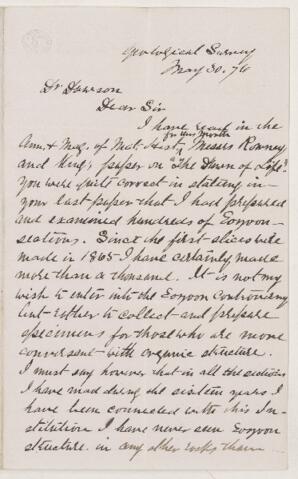 Geological Survey
May 30. 76
Dr Dawson
Dear Sir
I have read in the
for this Month
Ann. & Mag. of Nat. Hist. Messrs Rowney
and King's paper on "The Dawn of Life".
You were quite correct in stating in
your last paper that I had prepared
and examined hundreds of Eozoon
sections. Since the first slices were
made in 1865 I have certainly made
more than a thousand. It is not my
wish to enter into the Eozoon controversy
but rather to collect and prepare
specimens for those who are more
conversant with organic structure.
I must say however that in all the sections
I have made during the sixteen years I
have been connected with this In-
stitution I have never seen Eozoon
structure in any other rocks than